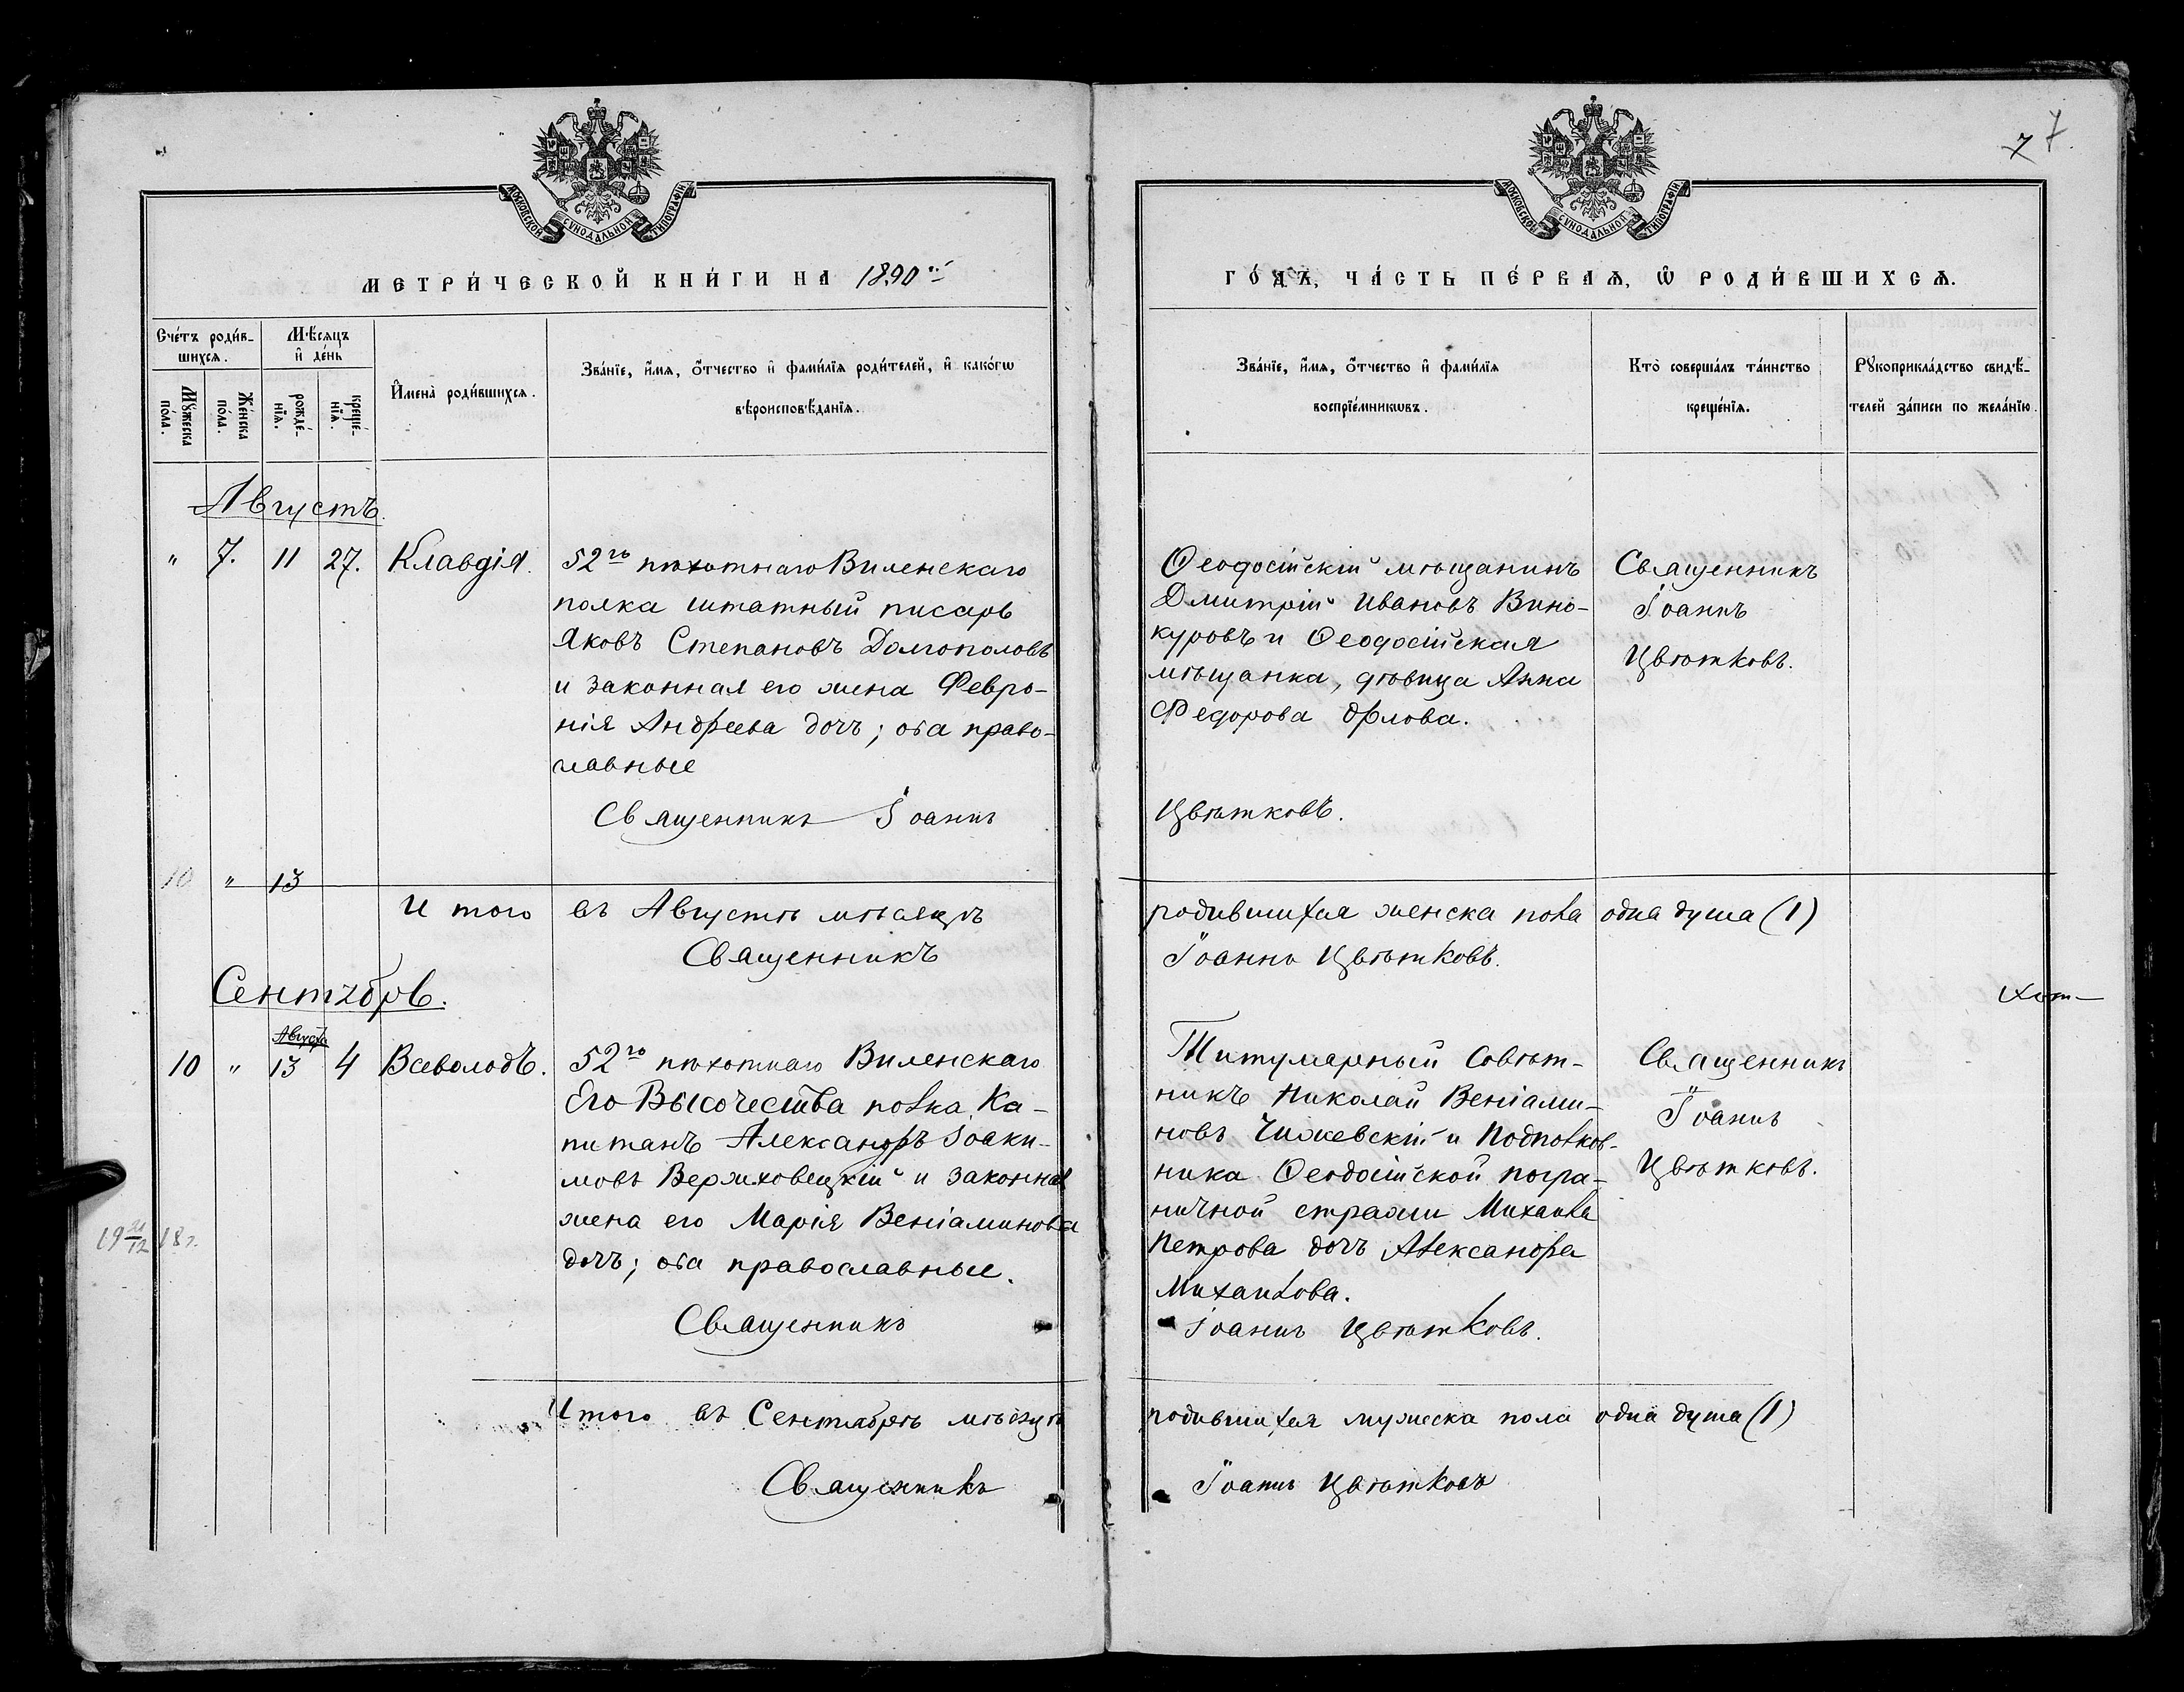 7 7
МОСКОВСКОЙ СУНОДАЛЬНОЙ ТИПОГРАФІИ
МОСКОВСКОЙ СУНОДАЛЬНОЙ ТИПОГРАФІИ
МЕТРИ́ЧЕСКОЙ КНИ́ГИ НА 1890й
ГО́ДЪ, ЧА́СТЬ ПЕ́РВАѦ, Ѡ҆ РОДИ́ВШИХСѦ.
Сче́тъ роди́в-
шихсѧ.
Мѣ́сѧцъ
и҆ де́нь
Мꙋ́жеска
по́ла.
Же́нска
по́ла.
рожде́-
нїѧ.
креще́-
нїѧ.
И҆мена̀ роди́вшихсѧ.
Зва́нїе, и҆́мѧ, ѻ҆́тчество и҆ фами́лїѧ роди́телей, и҆ како́гѡ
вѣроисповѣ́данїѧ.
Зва́нїе, и҆́мѧ, ѻ҆́тчество и҆ фами́лїѧ
воспрїе́мникѡвъ.
Кто̀ соверша́лъ та́инство
креще́нїѧ.
Рꙋкоприкла́дство свидѣ́-
телей за́писи по жела́нїю.
Августъ.
" 7. 11 27. Клавдія.
52го пѣхотнаго Виленскаго
полка штатный писарь
Яковъ Степановъ Долгополовъ
и законная его жена Февро-
нія Андреева дочь; оба право-
славные
Священникъ Іоаннъ
Ѳеодосійскій мѣщанинъ
Дмитрій Ивановъ Вино-
куровъ и Ѳеодосійская
мѣщанка, дѣвица Анна
Федорова Орлова.
Цвѣтковъ.
Священникъ
Іоаннъ
Цвѣтковъ.
10 " 13
И того въ Августѣ мѣсяцѣ
родившихся женска пола одна душа (1)
Священникъ
Іоаннъ Цвѣтковъ.
Сентябрь.
Августа
10 " 13 4 Всеволодъ.
52го пѣхотнаго Виленскаго
Его Высочества полка Ка-
питанъ Александръ Іоаки-
мовъ Вержховецкій и законная
жена его Марія Веніаминова
дочь; оба православные.
Священникъ
Титулярный Совѣт-
никъ Николай Веніами-
новъ Чижевскій и Подполков-
ника Ѳеодосійской погра-
ничной стражи Михаила
Петрова дочь Александра
Михаилова.
Іоаннъ Цвѣтковъ.
Священникъ
Іоаннъ
Цвѣтковъ.
19 21/12 18 г.
Итого въ Сентябрѣ мѣсяцѣ
родившихся мужеска пола одна душа (1)
Священникъ
Іоаннъ Цвѣтковъ